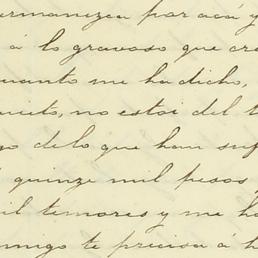 permanezca por acá y
á lo gravoso que cre
cuanto me ha dicho,
no estoi del t
o delo que han suf
quinze mil pesos
mil temores y me ha
conmigo te precisa á h